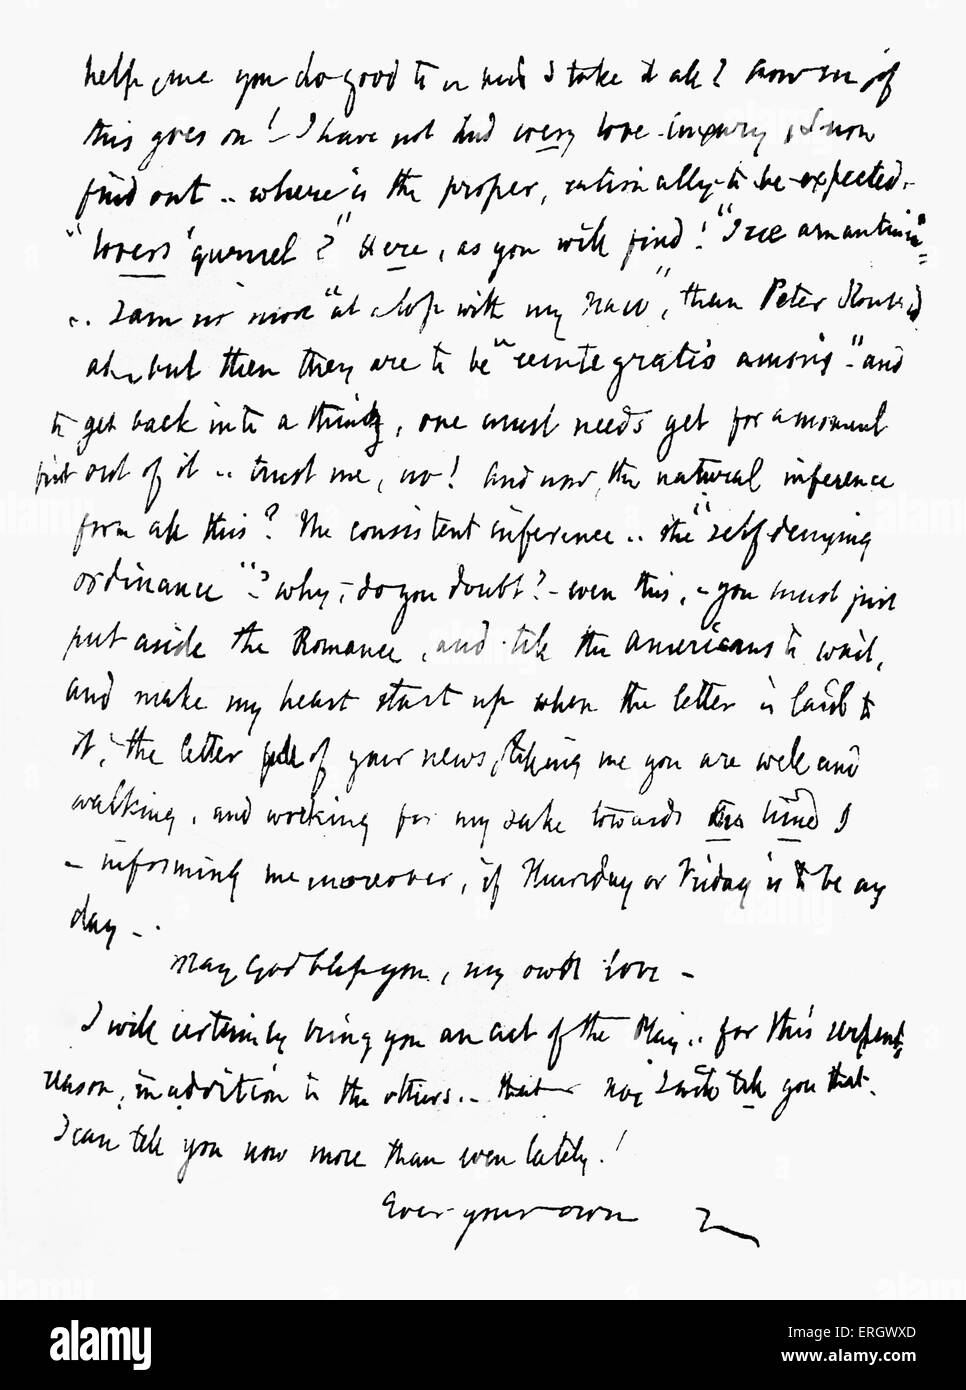 help me you do good to me and I take it all! Now see if
this goes on! I have not had every love-luxury, I now
find out .. where is the proper, rationally-to-be-expected,
"lovers' quarrel?" Here, as you will find! "Iræ amantium"
.. I am no more "at a loss with my Naso", than Peter Ronsard
ah, but then they are to be "reintegratio amoris" - and
to get back into a thing, one must needs get for a moment
first out of it .. trust me, no! And now, the natural inference
from all this? The consistent inference .. the "self-denying
ordinance"? why, - do you doubt? - even this, - you must just
put aside the Romance, and tell the Americans to wait,
and make my heart start up when the letter is laid to
it, the letter full of your news, telling me you are well and
walking, and working for my sake towards the time
- informing me moreover, if Thursday or Friday is to be my
day - .
May God bless you, my own love -
I will certainly bring you an act of the Play .. for this serpent's
reason, in addition to the others .. that - no, I will tell you that.
I can tell you now more than even lately!
Ever your own
alamy
Image ID: ERGWXD
www.alamy.com